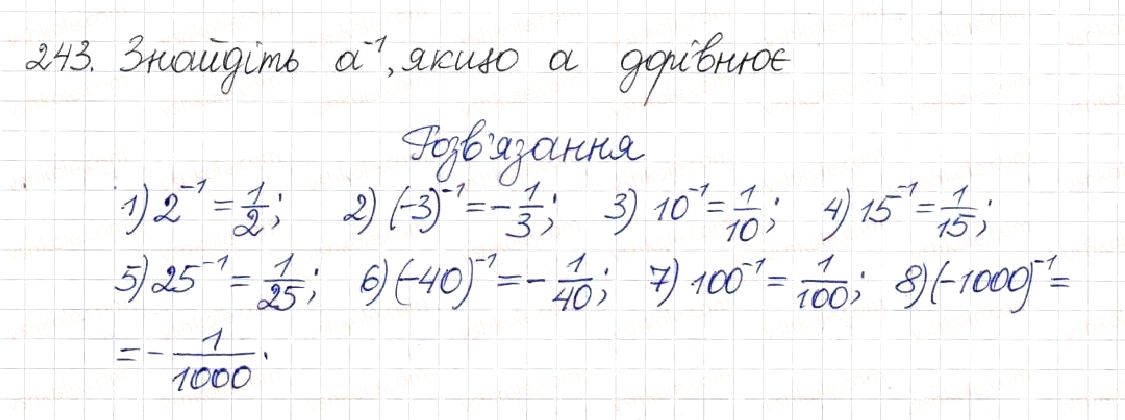 243. Знайдіть a⁻¹, якщо a дорівнює
Розв'язання
1) 2⁻¹ = 1/2; 2) (-3)⁻¹ = -1/3; 3) 10⁻¹ = 1/10; 4) 15⁻¹ = 1/15;
5) 25⁻¹ = 1/25; 6) (-40)⁻¹ = -1/40; 7) 100⁻¹ = 1/100; 8) (-1000)⁻¹ =
= -1/1000.